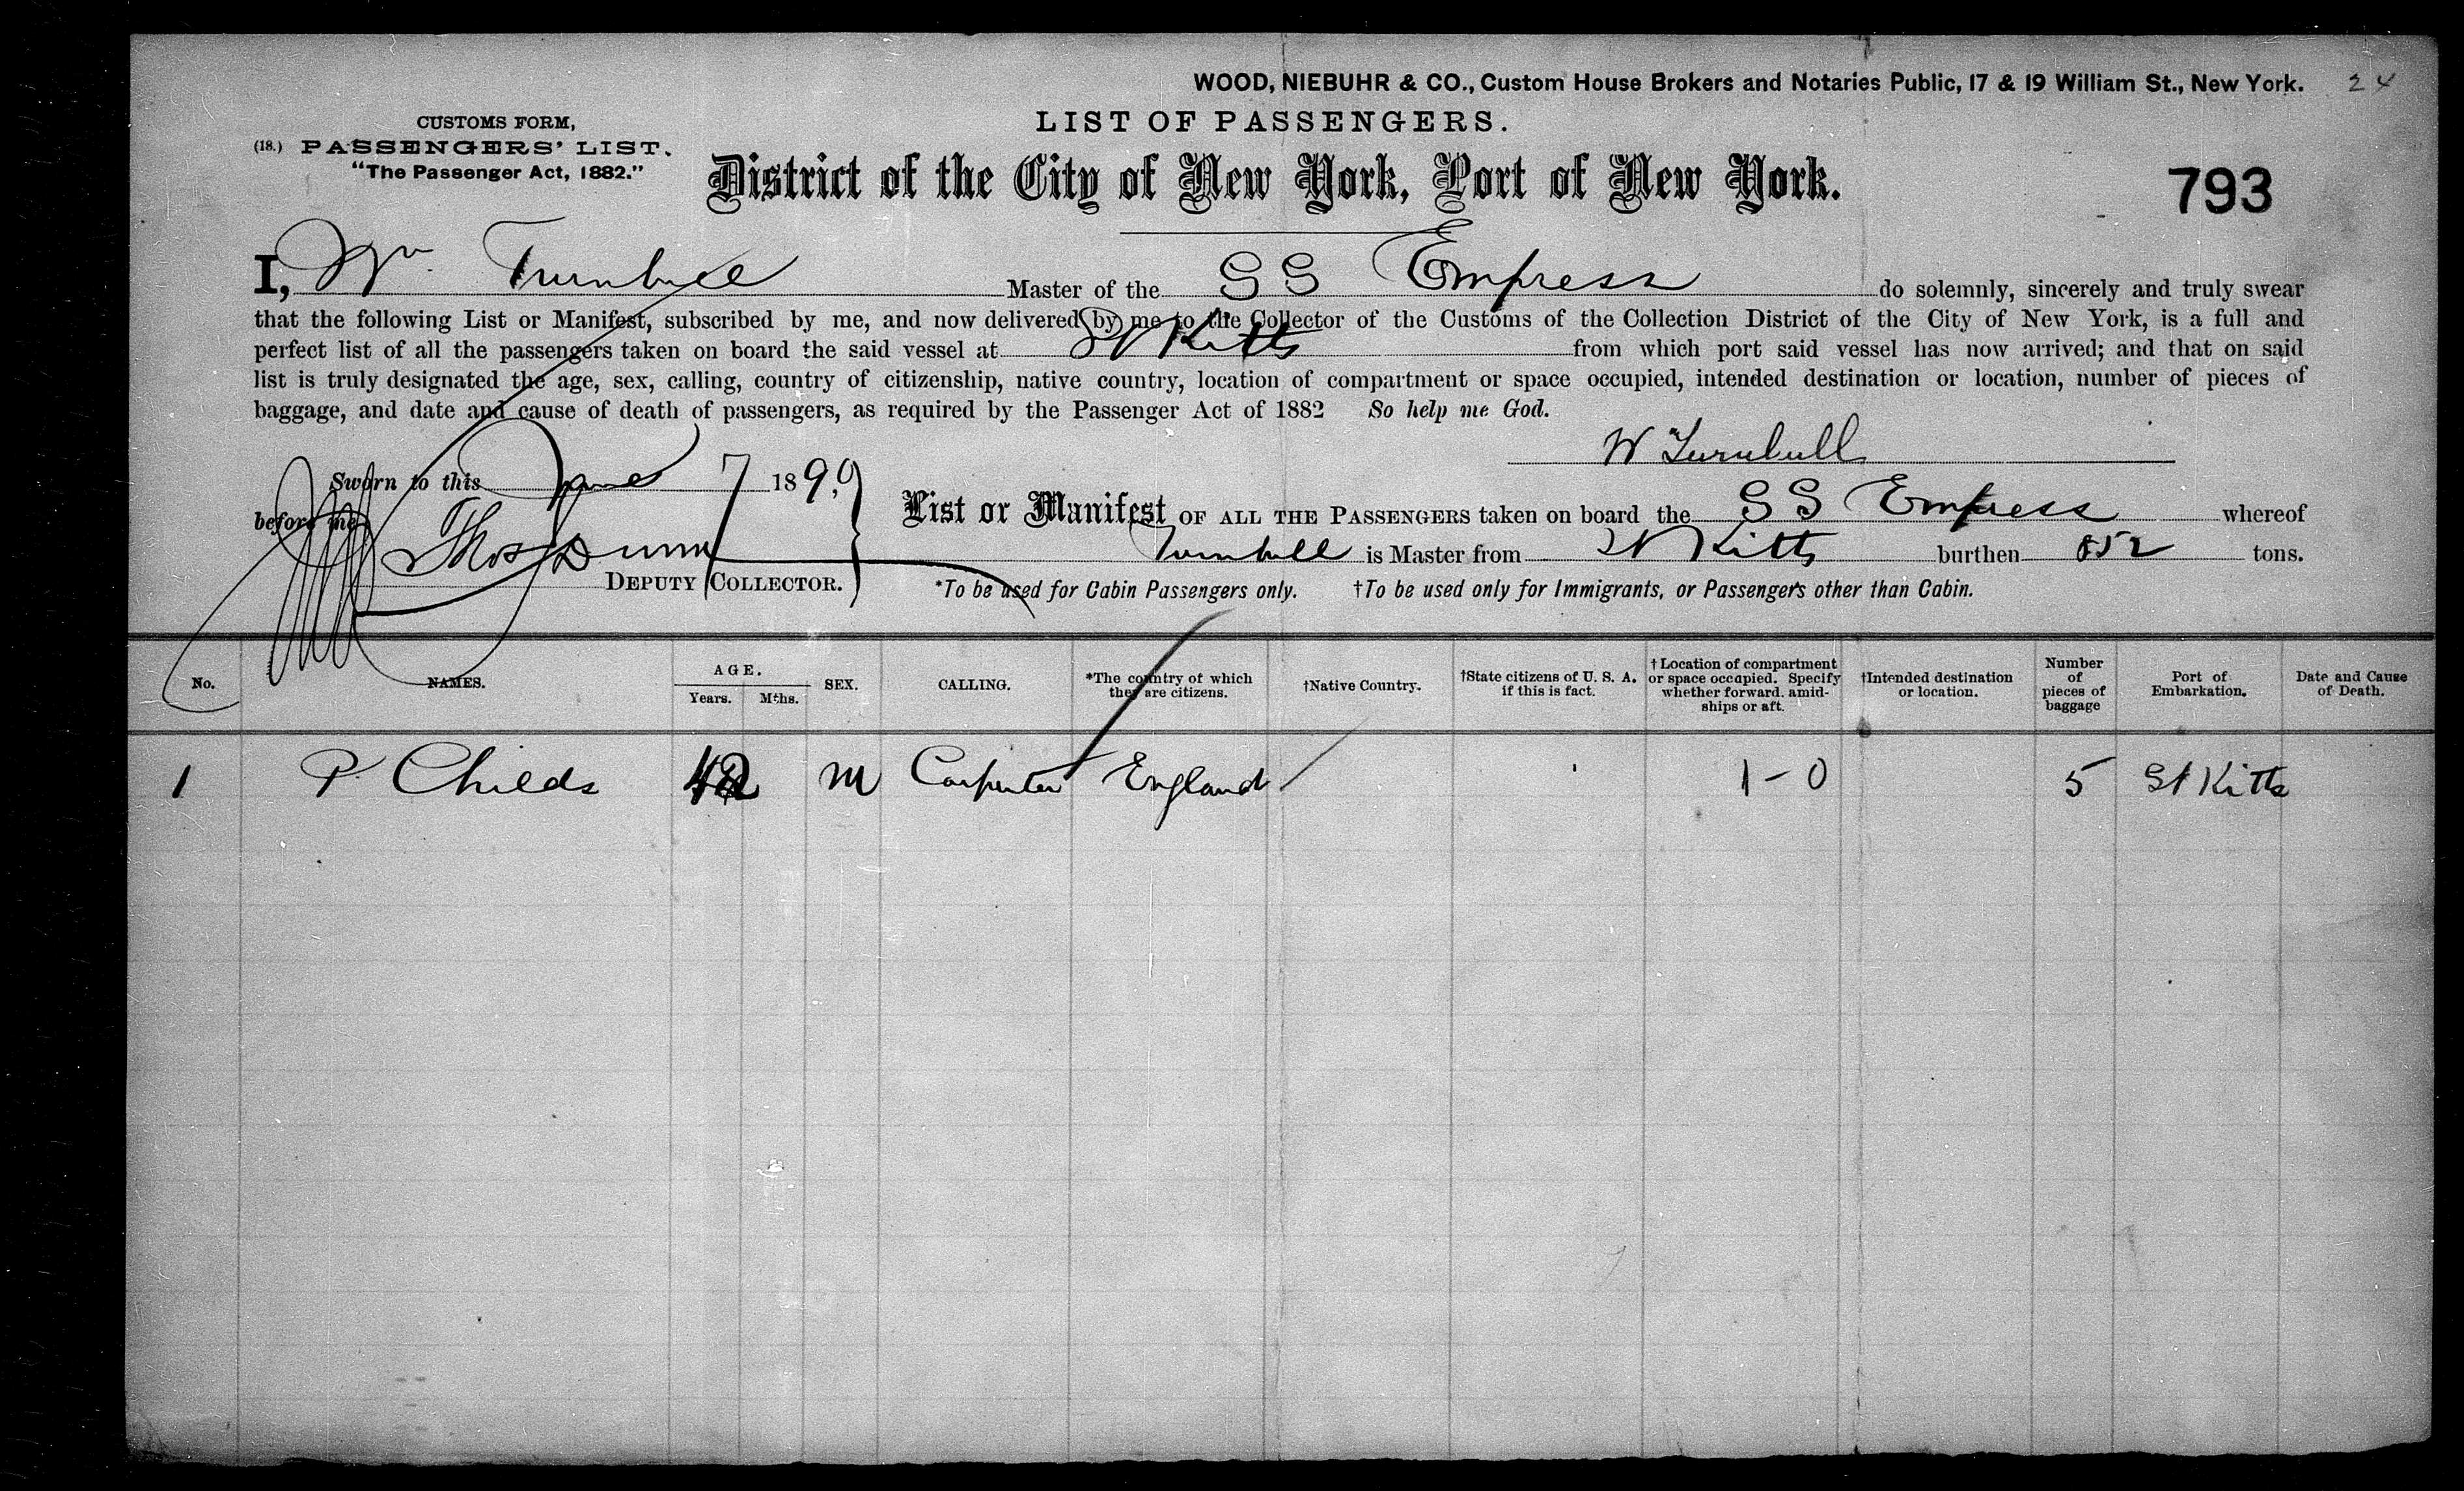 WOOD, NIEBUHR & CO., Custom House Brokers and Notaries Public, 17 & 19 William St., New York. 24
LIST OF PASSENGERS.
CUSTOMS FORM,
(18.) PASSENGERS' LIST.
"The Passenger Act, 1882."
District of the City of New York, Port of New York.
793
I, Wm Turnbull Master of the SS Empress do solemnly, sincerely and truly swear
that the following List or Manifest, subscribed by me, and now delivered by me to the Collector of the Customs of the Collection District of the City of New York, is a full and
perfect list of all the passengers taken on board the said vessel at St Kitts from which port said vessel has now arrived; and that on said
list is truly designated the age, sex, calling, country of citizenship, native country, location of compartment or space occupied, intended destination or location, number of pieces of
baggage, and date and cause of death of passengers, as required by the Passenger Act of 1882 So help me God.
W Turnbull
Sworn to this June 7 1899
before me
Thos Dunn
DEPUTY COLLECTOR.
List or Manifest OF ALL THE PASSENGERS taken on board the SS Empress whereof
Turnbull is Master from St Kitts burthen 852 tons.
*To be used for Cabin Passengers only. †To be used only for Immigrants, or Passengers other than Cabin.
No. NAMES. AGE. Years. Mths. SEX. CALLING. *The country of which they are citizens. †Native Country. †State citizens of U. S. A. if this is fact. †Location of compartment or space occupied. Specify whether forward, amid-ships or aft. †Intended destination or location. Number of pieces of baggage Port of Embarkation. Date and Cause of Death.
1 P. Childs 42 M Carpenter England 1-0 5 St Kitts